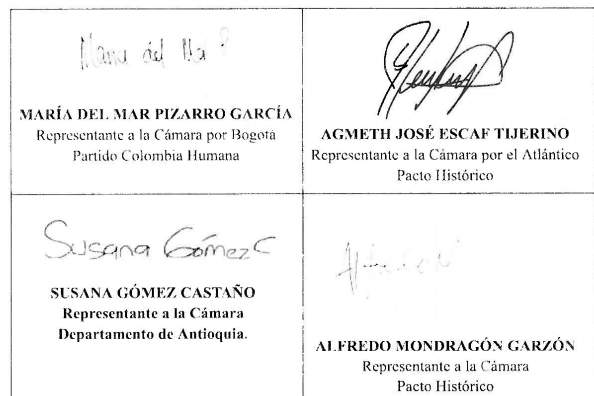 Maria del Mar P
MARÍA DEL MAR PIZARRO GARCÍA
Representante a la Cámara por Bogotá
Partido Colombia Humana
AGMETH JOSÉ ESCAF TIJERINO
Representante a la Cámara por el Atlántico
Pacto Histórico
Susana Gómez C
SUSANA GÓMEZ CASTAÑO
Representante a la Cámara
Departamento de Antioquia.
ALFREDO MONDRAGÓN GARZÓN
Representante a la Cámara
Pacto Histórico